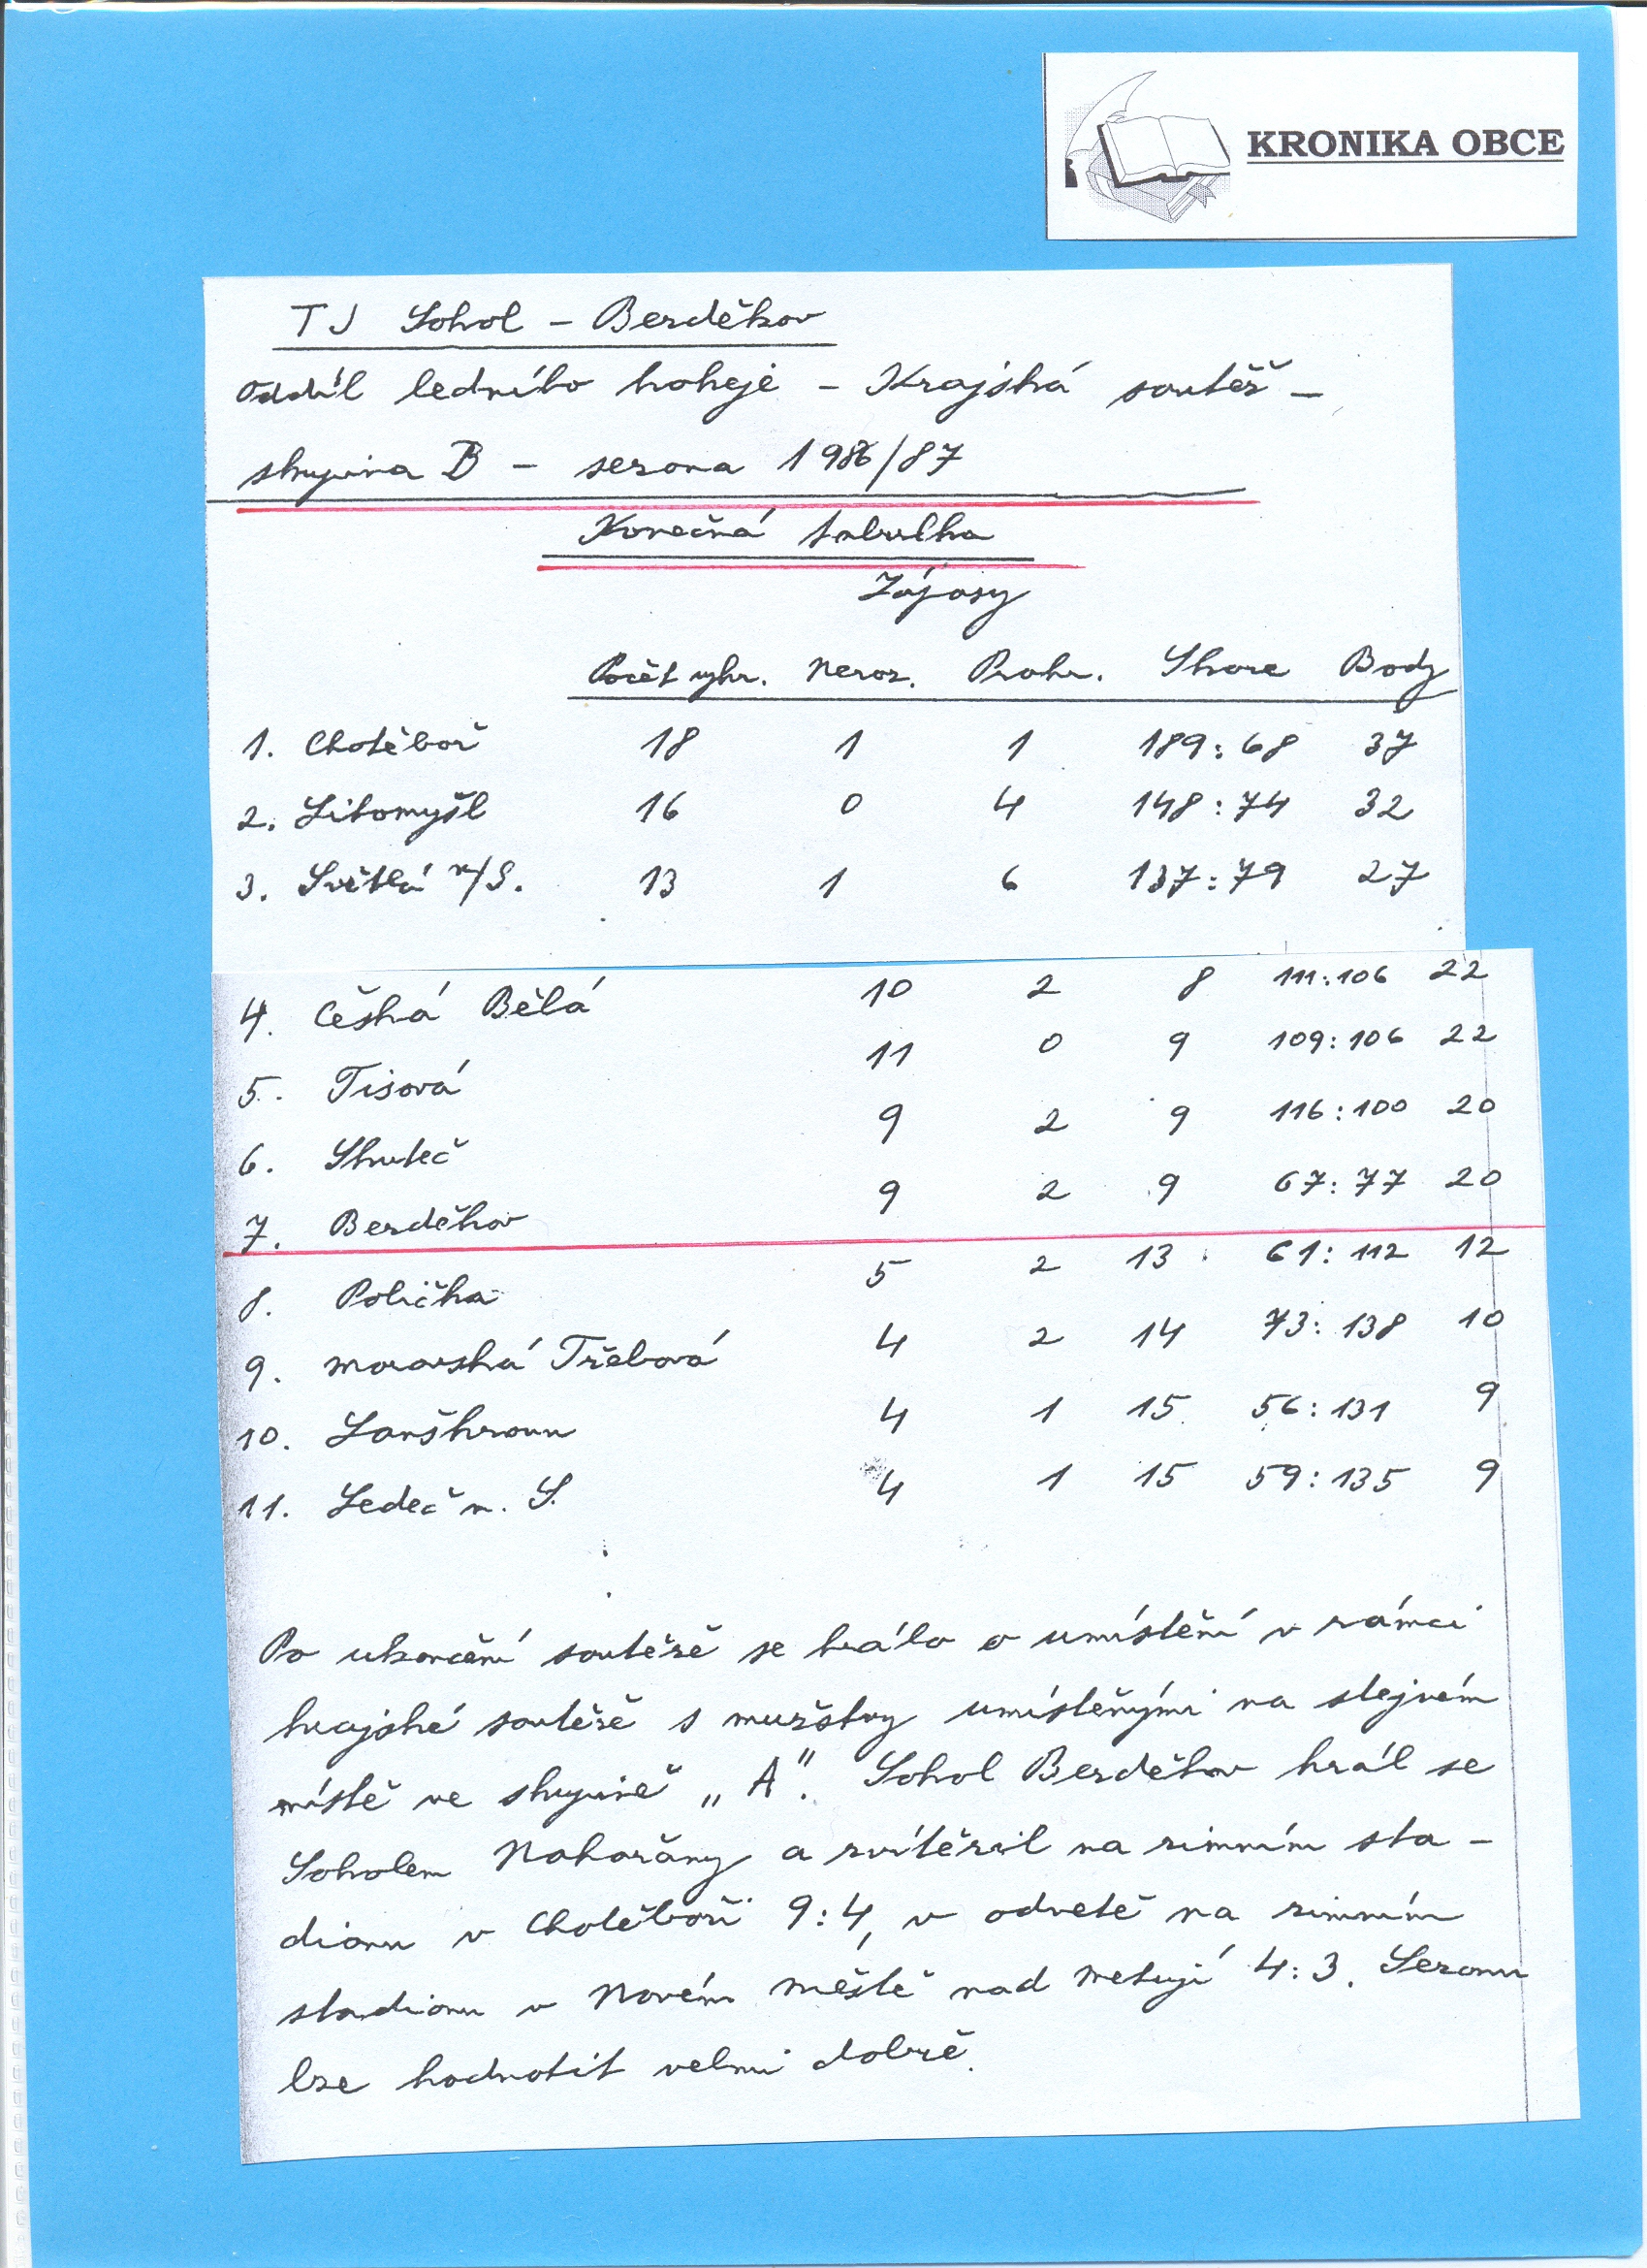 KRONIKA OBCE
TJ Sokol - Bezděkov
Oddíl ledního hokeje - Krajská soutěž -
skupina B - sezona 1986/87
Konečná tabulka
Zápasy
Počet vyhr. Neroz. Prohr. Skore Body
1. Chotěboř 18 1 1 189:68 37
2. Litomyšl 16 0 4 148:74 32
3. Světlá n/S. 13 1 6 137:79 27
4. Česká Bělá 10 2 8 111:106 22
5. Tisová 11 0 9 109:106 22
6. Skuteč 9 2 9 116:100 20
7. Bezděkov 9 2 9 67:77 20
8. Polička 5 2 13 61:112 12
9. Moravská Třebová 4 2 14 73:138 10
10. Lanškroun 4 1 15 56:131 9
11. Ledeč n. S. 4 1 15 59:135 9
Po ukončení soutěže se hrálo o umístění v rámci
krajské soutěže s mužstvy umístěnými na stejném
místě ve skupině „A". Sokol Bezděkov hrál se
Sokolem Nahořany a zvítězil na zimním sta-
dionu v Chotěboři 9:4, v odvetě na zimním
stadionu v Novém Městě nad Metují 4:3. Sezonu
lze hodnotit velmi dobře.